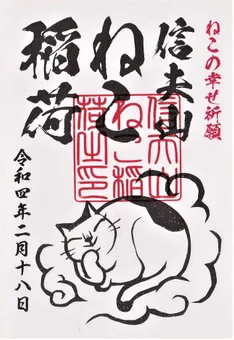 ねこの幸せ祈願
信夫山
ねこ
稲荷
信夫山
ねこ稲
荷之印
令和四年二月十八日